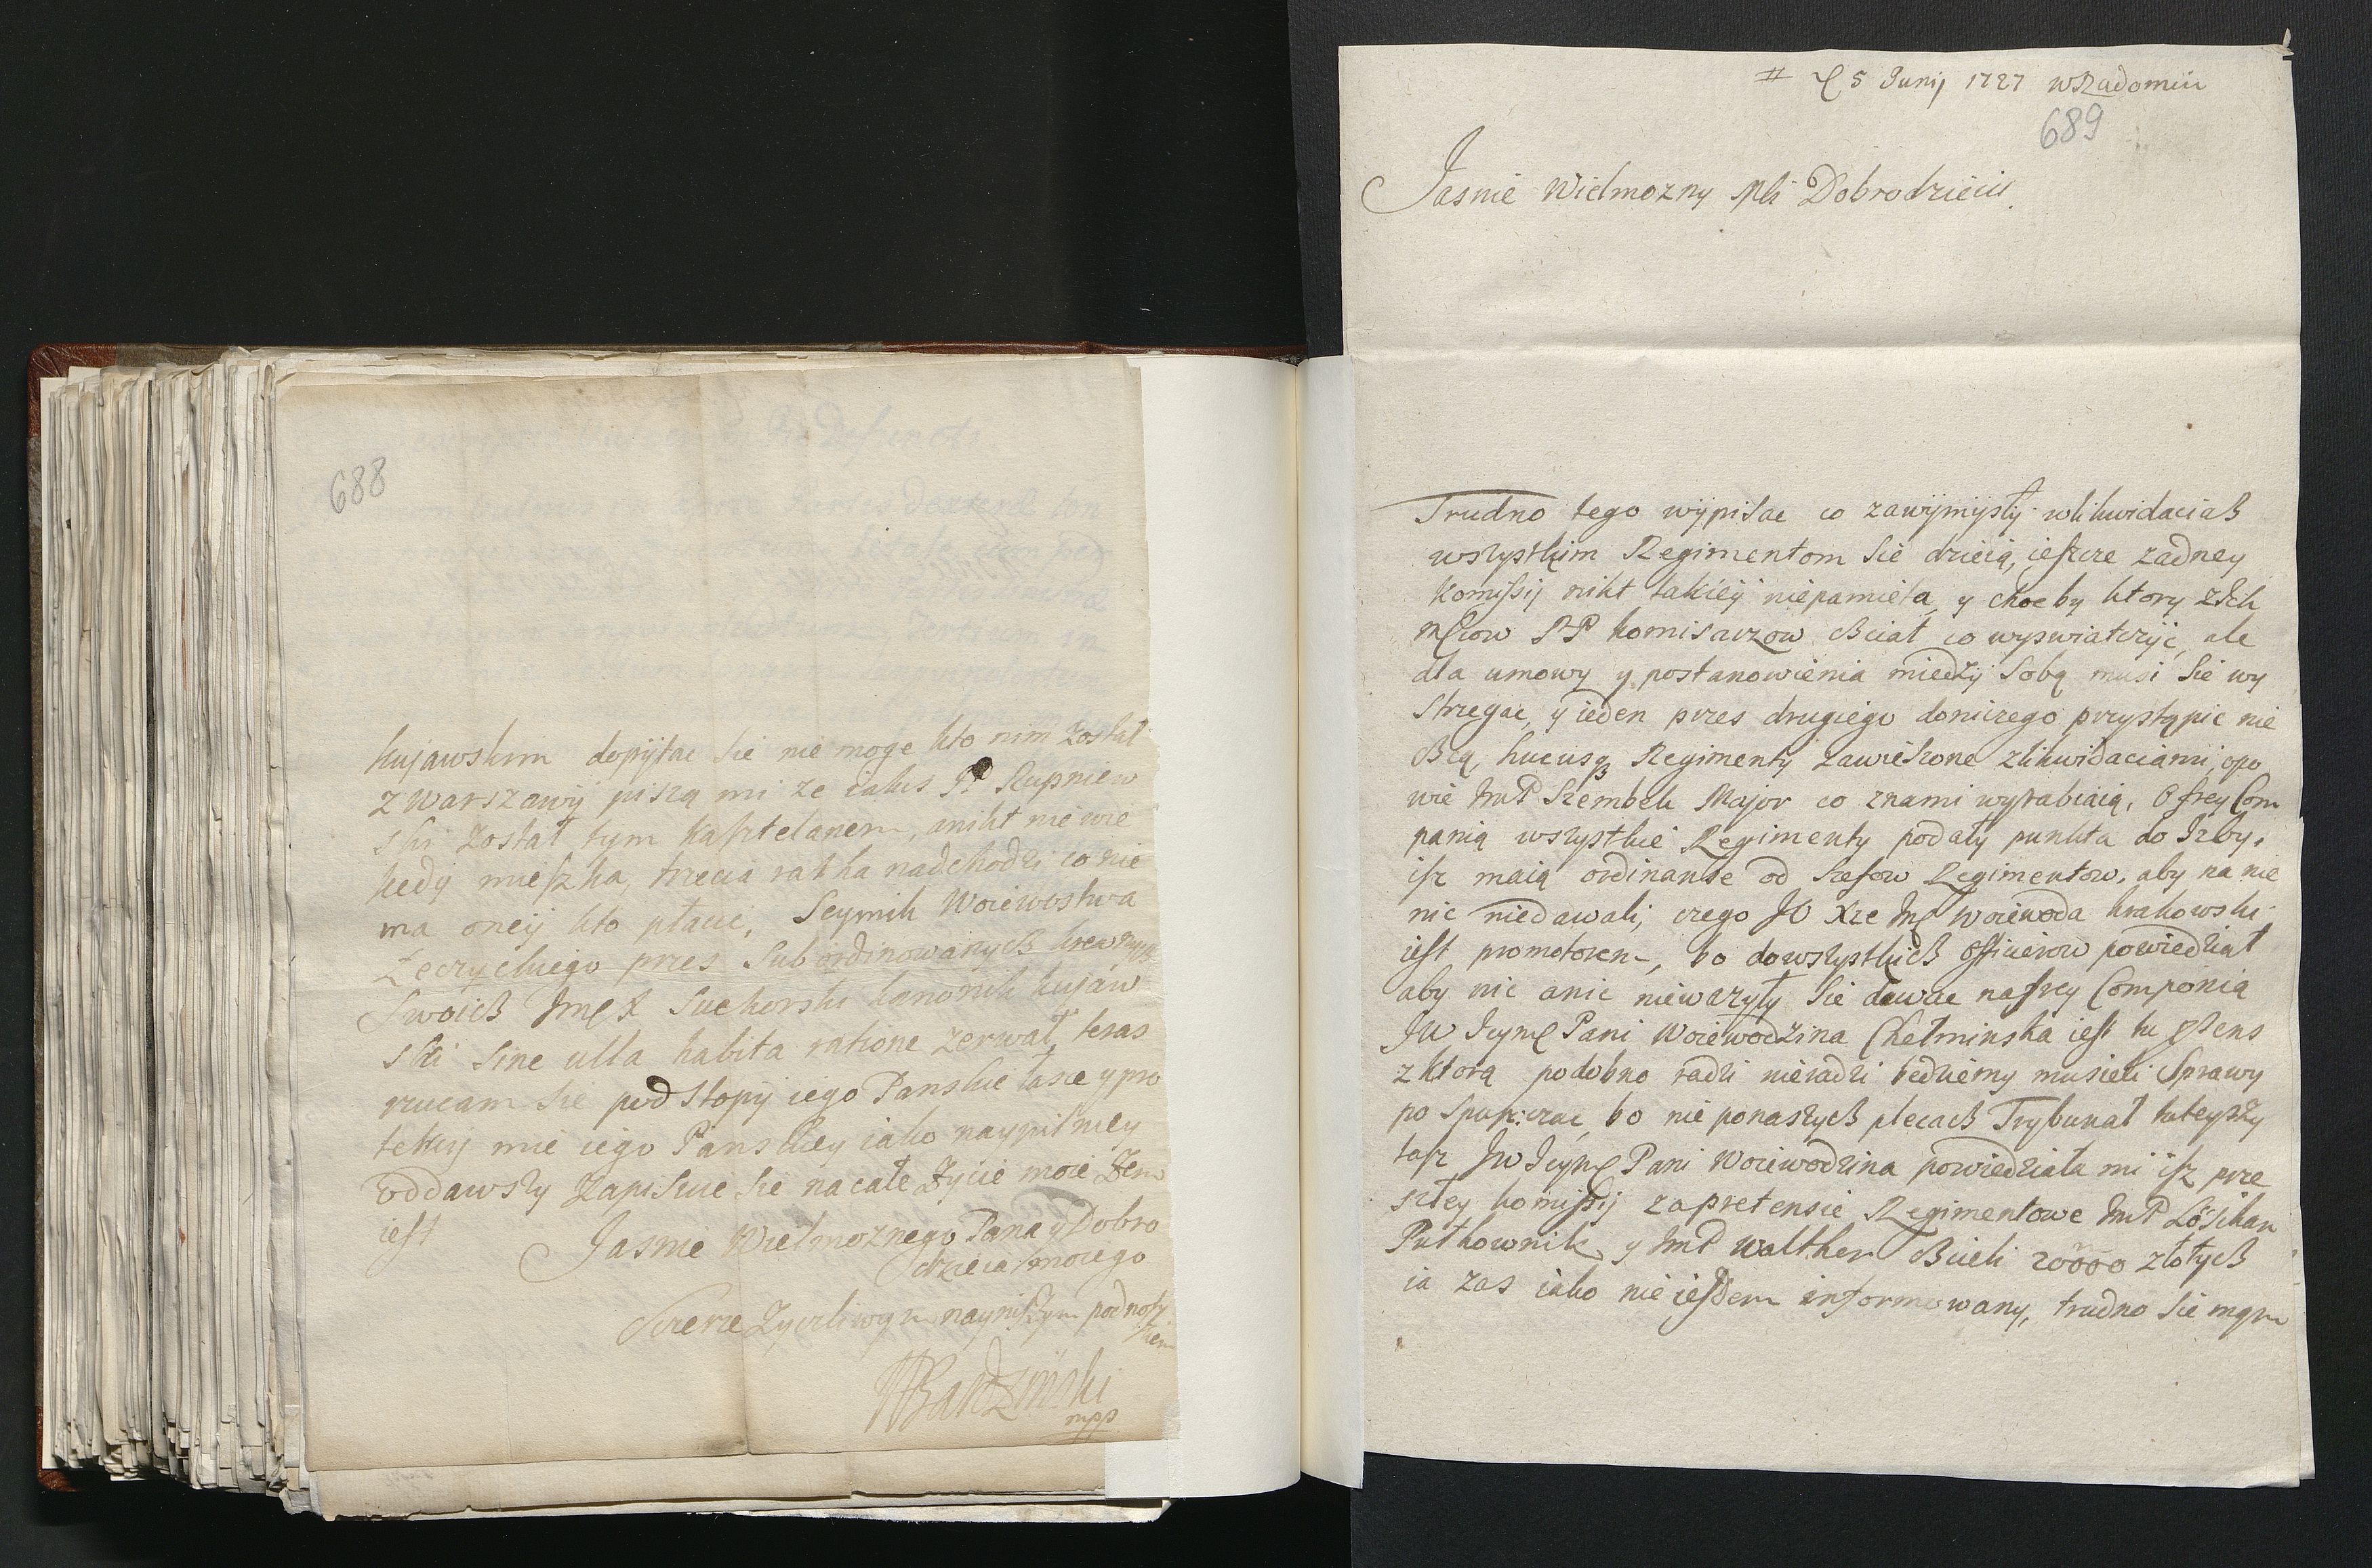 688
kujawskim dopÿtac sie nie moge kto nim został
z Warszawÿ piszą mi ze iakis JP Rupniew
ski został tym kasztelanem, a nikt nie wie
kedÿ mieszka, trzecia ratha nadchodzi, co nie
ma oneÿ kto płacić, Seymik Woiewostwa
Łeczyckiego przes Subordinowanych krewnych
Swoich JmX Suchorski kanonik kujaw
ski Sine ulla habita ratione zerwał, teras
rzucam sie pod Stopÿ iego Panskie łasce y pro
tekcÿ mie iego Panskiey iako naypilniey
oddawszy Zapisuie sie na całe Zÿcie moie Zem
iest Jasnie Wielmoznego Pana y Dobro
dzieia moiego
Szczerze Zyczliwym naynisszym podnosz
kiem
WBardzinski
mpp
# D 5 Junij 1727 w Radomiu
689
Jasnie Wielmozny Msci Dobrodzieiu
Trudno tego wÿpisac co za wÿmÿslÿ w likwidaciach
wszystkim Regimentom Sie dzieią, ieszcze zadney
komissij nikt takieÿ niepamieta, y choc by ktory z Ich
Mciow PP komisarzow chciał co wyswiatczÿc, ale
dla umowy y postanowienia miedzÿ Sobą musi Sie wy
strzegac, y ieden przes drugiego do niczego przystąpic nie
chcą, hucusq3 Regimentÿ zawieszone z likwidaciami, opo
wie ImP Szembek Major co z nami wyrabiaią, O frey Com
panią wszystkie Regimenty podały punkta do Izby,
isz maią ordinanse od Szefow Regimentow, aby na nie
nic niedawali, czego JO Xze Jmc Woiewoda krakowski
iest promotorem, bo do wszystkich Officierow powiedział
aby nic a nic niewazyły Sie dawac na frey Companią
JW Jeymc Pani Woiewodzina Chełminska iest tu Præsens
z ktorą podobno radzi nieradzi bedziemy musieli Sprawy
po Spuszczac, bo nie po naszych plecach Trybunał tuteyszy
tasz JW Jeymc Pani Woiewodzina powiedziała mi isz prze
szłey komissij za pretensie Regimentowe ImP Löschau
Pułkownik y ImP Walther chcieli 20000 złotych
ia zas iako nie iestem informowany, trudno Sie mam